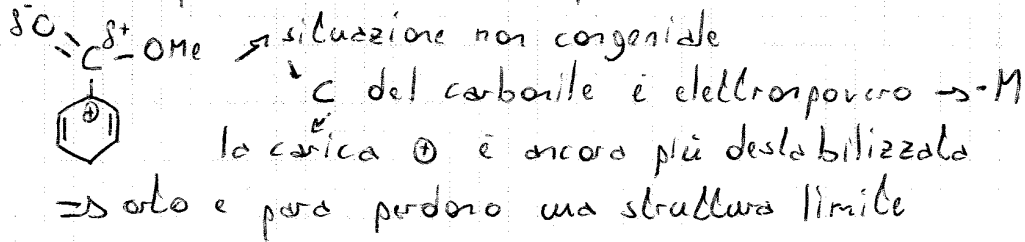 δ⁻O δ⁺ C - OMe ↗ situazione non congeniale
↘ C del carbonile è elettronpovero → -M
la carica ⊕ è ancora più destabilizzata
⇒ orto e para perdono una struttura limite